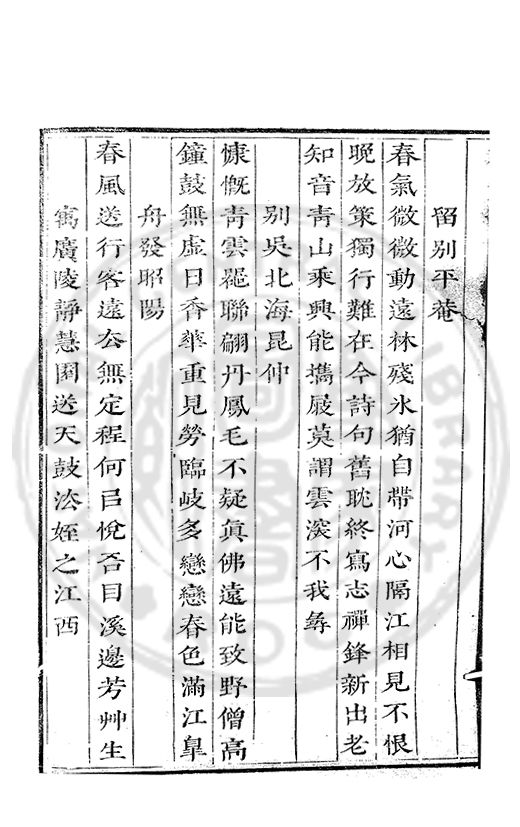 留别平菴
春氣微微動遠林殘氷猶自帶河心隔江相見不恨
晚放策獨行難在今詩句舊耽終寫志禪鋒新出老
知音靑山乘興能擕屐莫謂雲深不我尋
别吳北海昆仲
慷慨靑雲器聯翩丹鳳毛不疑眞佛遠能致野僧高
鐘鼓無虛日香華重見勞臨岐多戀戀春色滿江皐
舟發昭陽
春風送行客遠去無定程何㠯悅吾目溪邊芳艸生
寓廣陵靜慧園送天鼓法姪之江西